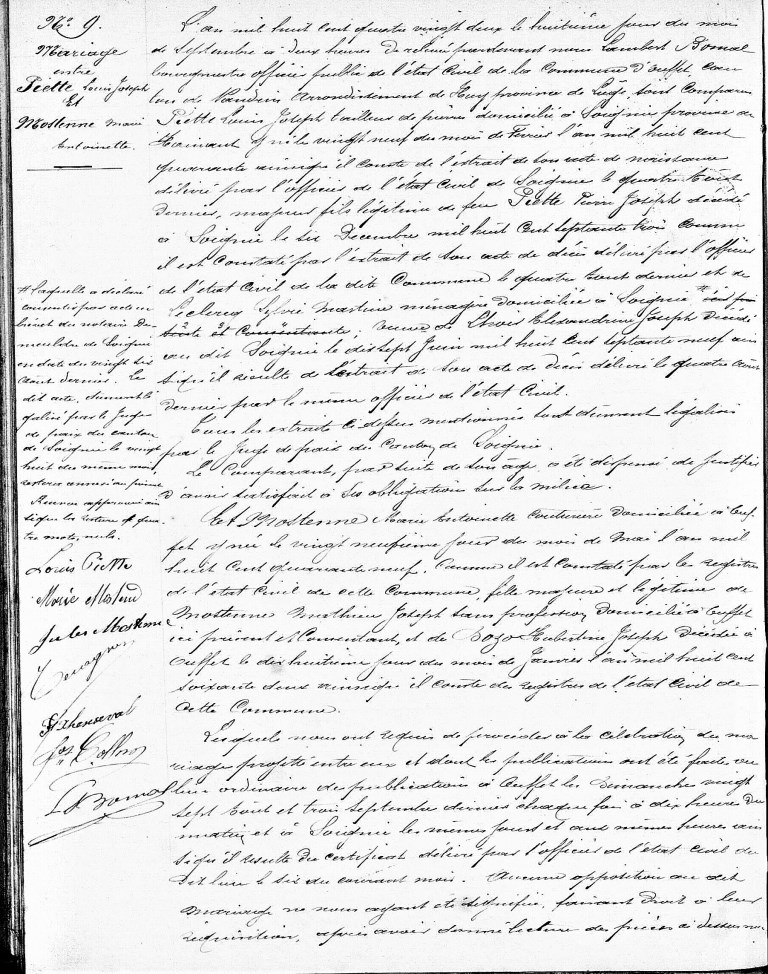 No 9.
Mariage
entre
Piette Louis Joseph
Et
Mostenne Marie
Antoinette.
L'an mil huit cent quatre vingt deux le huitième jour du mois
de Septembre à deux heures de relevée pardevant nous Lambert Bomal
bourgmestre officier public de l'état Civil de la Commune d'ouffet, can
ton de Nandrin arrondissement de Huy province de Liège, sont Comparus
Piette Louis Joseph tailleur de pierres domicilié à Soignie province de
Hainaut y né le vingt neuf du mois de Février l'an mil huit cent
quarante ainsi qu'il conste de l'extrait de son acte de naissance
délivré par l'officier de l'état civil de Soignie le quatre Août
dernier, majeur fils légitime de feu Piette Pierre Joseph décédé
à Soignie le six Decembre mil huit Cent septante trois comme
il est Constaté par l'extrait de son acte de décès délivré par l'officier
de l'état Civil de la dite Commune le quatre Août dernier et de
Leclercq Sylvie Martine ménagère domiciliée à Soignie #
et Consentante; veuve de Alexandrine Joseph décédé
au dit Soignie le dix sept Juin mil huit Cent septante neuf ain
si qu'il résulte de l'extrait de son acte de décès délivré le quatre Août
dernier par le même officier de l'état Civil.
Tous les extraits ci-dessus mentionnés sont dûment légalisés
par le Juge de paix du Canton de Soignie.
Le Comparant, par suite de son âge, a été dispensé de justifier
d'avoir satisfait à ses obligations sur la milice.
Et Mostenne Marie Antoinette Couturière domiciliée à Ouf
fet y née le vingt neuvième jour du mois de Mai l'an mil
huit Cent quarante neuf, Comme il est constaté par les registres
de l'état Civil de cette Commune, fille majeure et légitime de
Mostenne Mathieu Joseph sans profession domicilié à Ouffet
ici présent et Consentant, et de Hubertine Joseph décédée à
Ouffet le dix huitième jour du mois de Janvier l'an mil huit cent
soixante deux ainsi qu'il conste des registres de l'état Civil de
cette Commune.
Lesquels nous ont requis de procéder à la Célébration du ma
riage projeté entre eux et dont les publications ont été faites au
lieu ordinaire de publications à Ouffet les Dimanches vingt
sept Août et trois septembre derniers chaque fois à dix heures du
matin et à Soignie les mêmes jours et aux mêmes heures ain
si qu'il résulte du certificat délivré par l'officier de l'état civil du
dit lieu le six du courant mois. Aucune opposition au dit
mariage ne nous ayant été signifiée, faisant droit à leur
requisition, après avoir donné lecture des pièces ci dessus m
# laquelle a déclaré
consentir par acte en
brevet du notaire De
meulder de Soignie
en date du vingt six
Août dernier. Le
dit acte, dument lé
galisé par le Juge
de paix du canton
de Soignie le vingt
huit du même mois
restera annexé au présent
Renvoi approuvé ain
si que la rature de qua
tre mots, nuls.
Louis Piette
Marie Mosten
Jules Mostenne
L Bomal